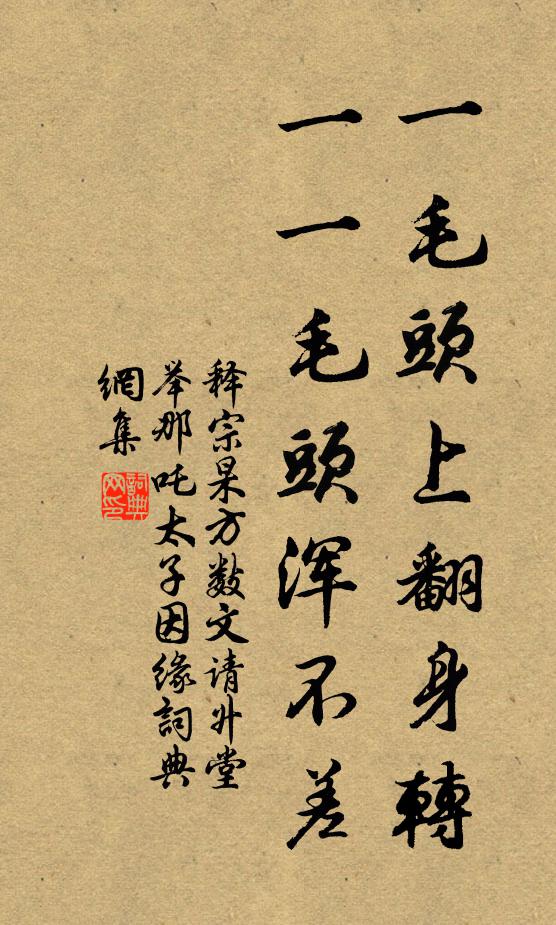 一毛頭上翻身轉
一一毛頭渾不差
释宗杲方敷文请升堂
举那吒太子因缘詞典
網集
詞典網印